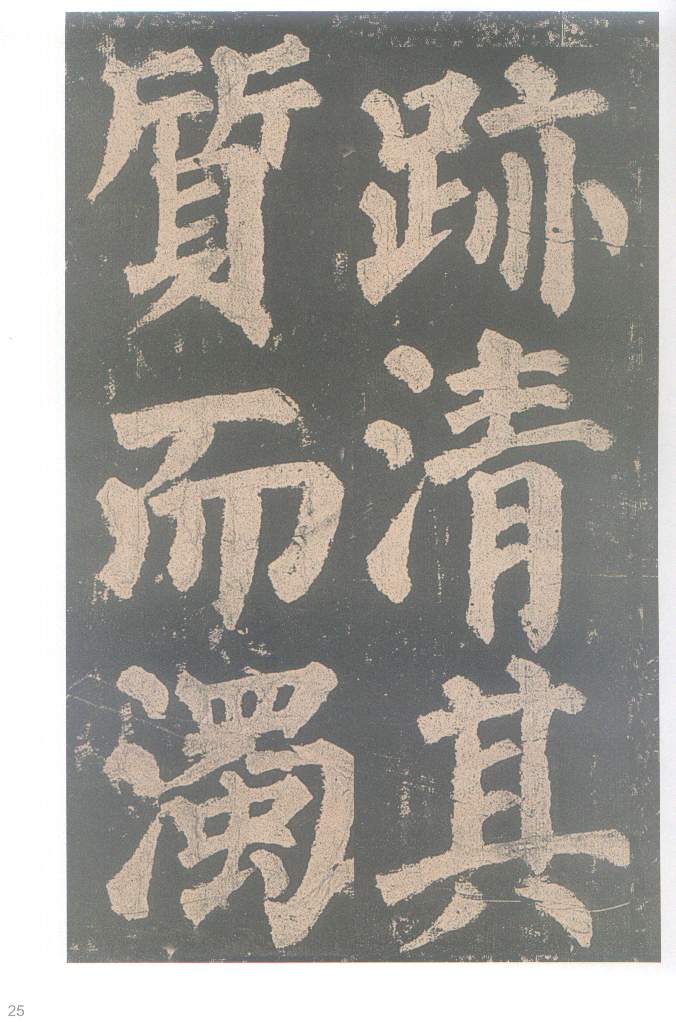 跡清其
質而濁
25